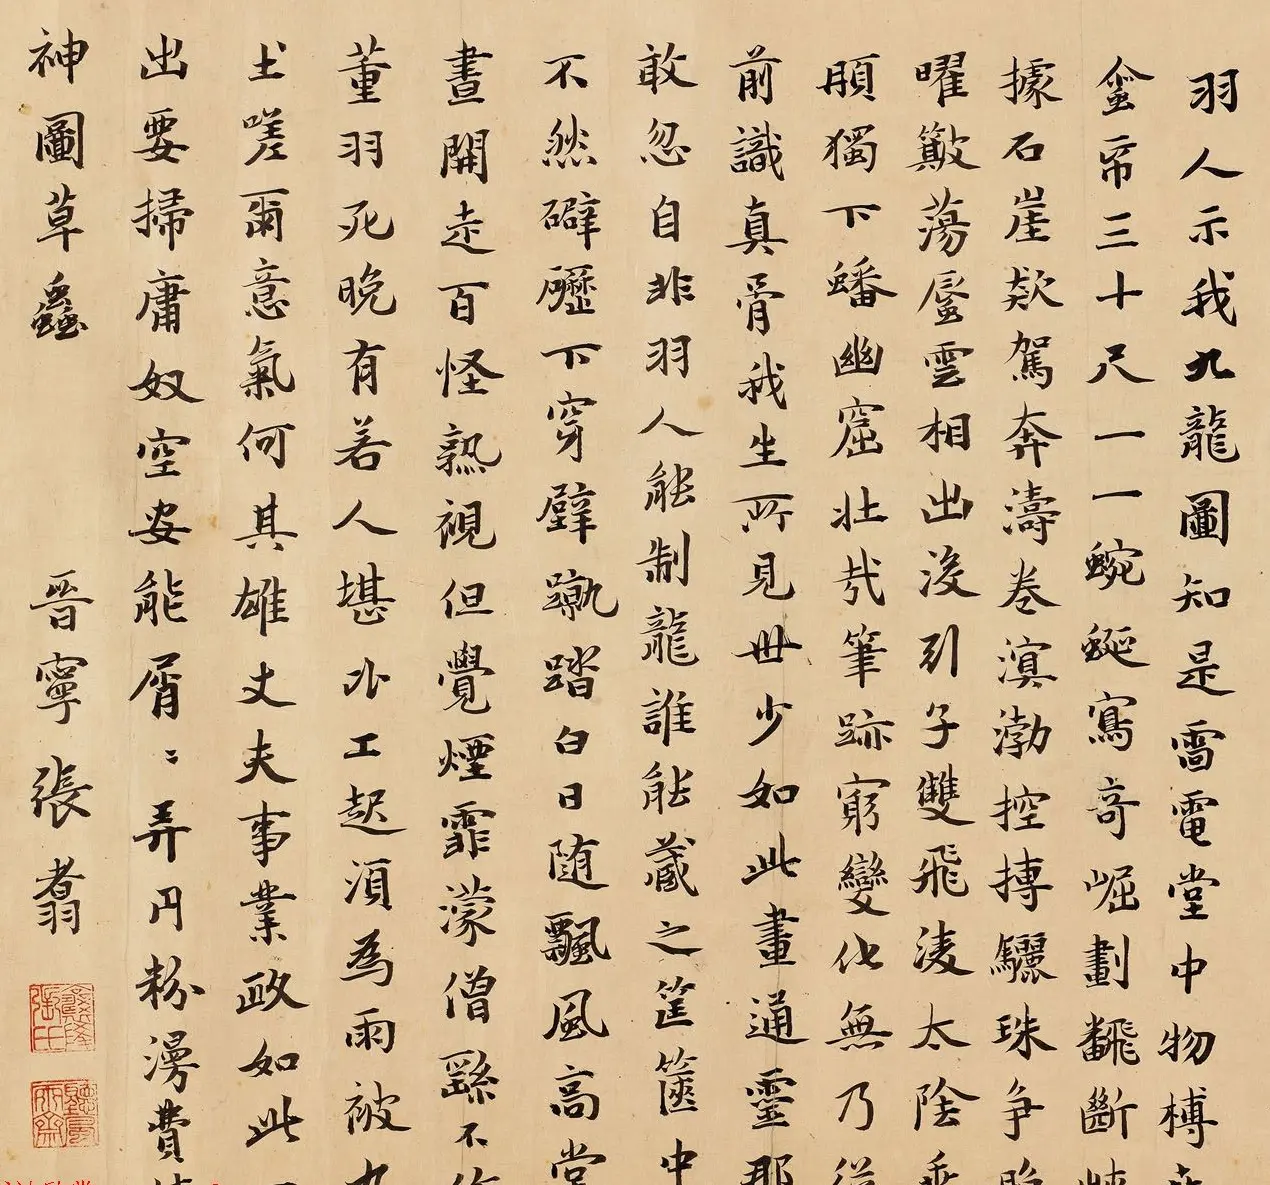 羽人示我九龍圖知是雷電堂中物榑
三十尺一一蜿蜒寫奇崛劃飜斷
據石崖欻駕奔濤卷溟渤控摶驪珠爭
曜簸蕩蜃雲相出沒引子雙飛淩太陰
頎獨下蟠幽窟壯哉筆跡窮變化無乃
前識真骨我生所見世少如此畫通靈那
敢忽自非羽人能制龍誰能藏之筐篋中
不然礔礰下穿壁蹴踏白日随飄風高堂
晝開走百怪熟視但覺煙霏濛僧繇不
董羽死晚有若人堪北工起須為雨被九
土嗟爾意氣何其雄丈夫事業政如此
出要掃庸奴空安能屑〻弄円粉漫費
神圖草蟲
晉寧張翥